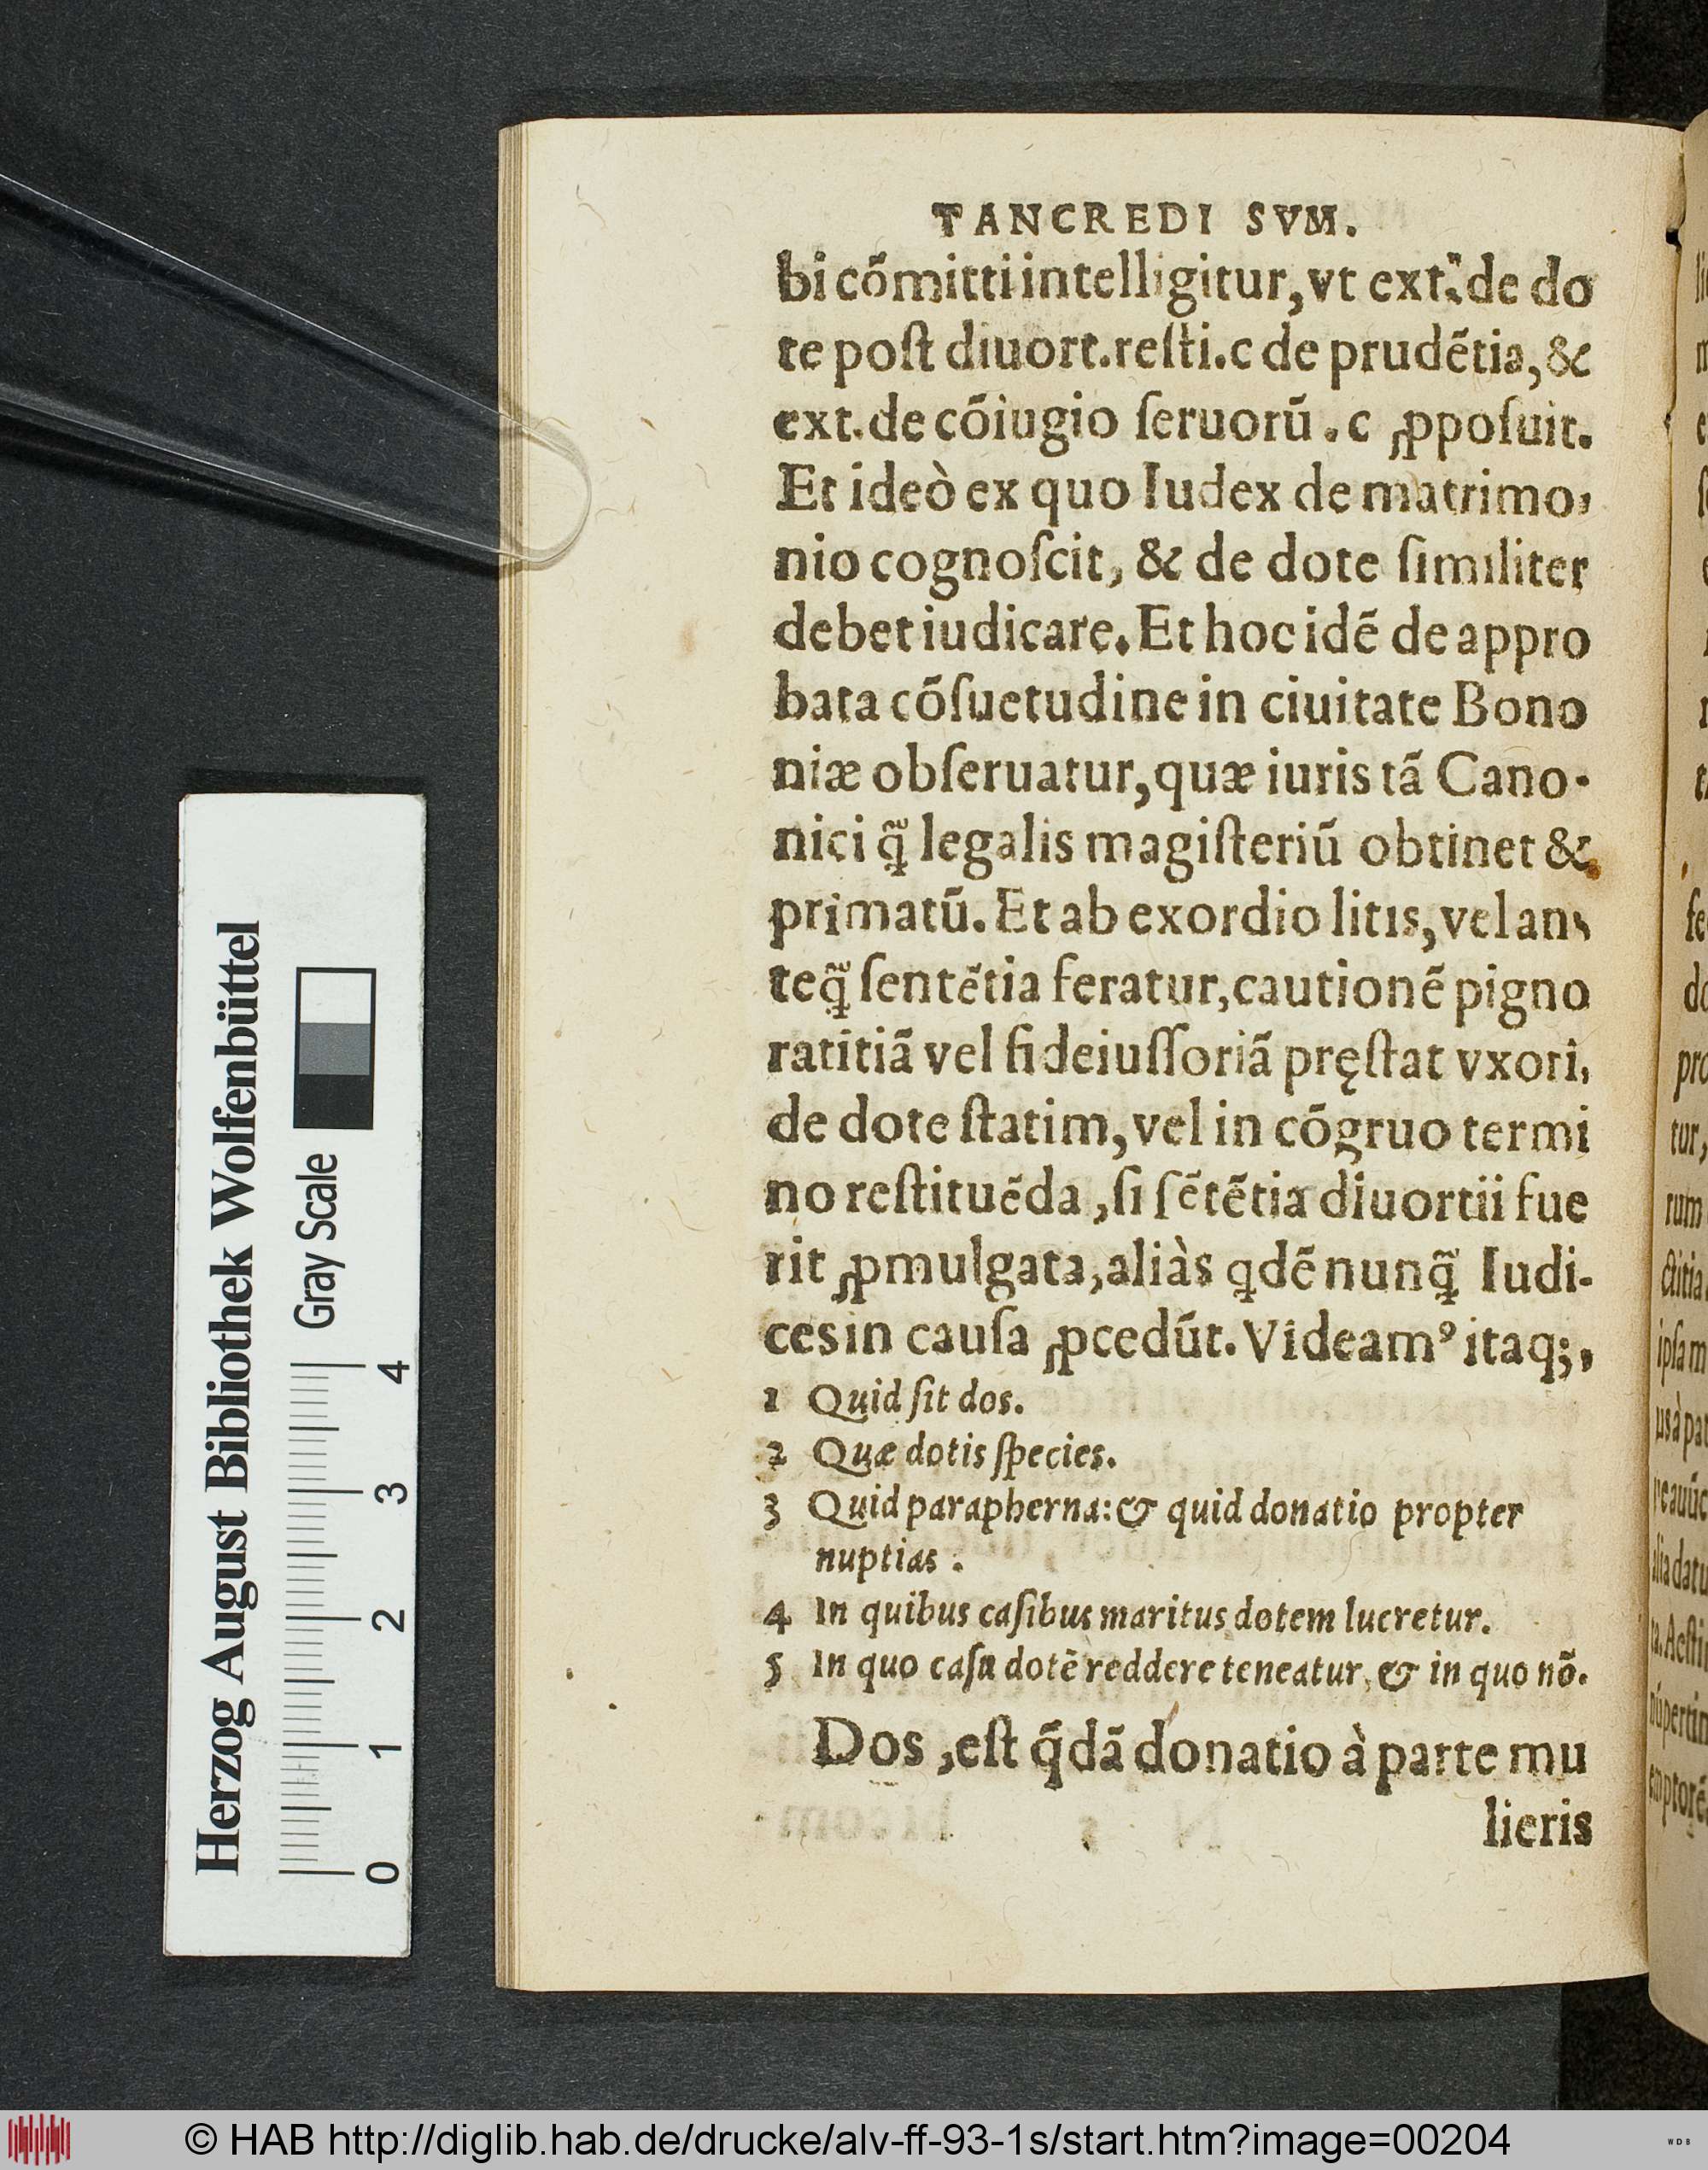 TANCREDI SVM.
bi cõmitti intelligitur, vt ext. de do
te poſt diuort. reſti. c de prudẽtia, &
ext. de cõiugio ſeruorũ. c ꝓpoſuit.
Et ideò ex quo Iudex de matrimo-
nio cognoſcit, & de dote ſimiliter
debet iudicare. Et hoc idẽ de appro
bata cõſuetudine in ciuitate Bono
niæ obſeruatur, quæ iuris tã Cano-
nici ꝗ̃ legalis magiſteriũ obtinet &
primatũ. Et ab exordio litis, vel an-
teꝗ̃ ſentẽtia feratur, cautionẽ pigno
ratitiã vel fideiuſſoriã pręſtat vxori,
de dote ſtatim, vel in cõgruo termi
no reſtituẽda, ſi ſẽtẽtia diuortii fue
rit ꝓmulgata, aliàs ꝗdẽ nunꝗ̃ Iudi-
ces in cauſa ꝓcedũt. Videamꝰ itaq;,
1 Quid ſit dos.
2 Quæ dotis ſpecies.
3 Quid parapherna: & quid donatio propter
nuptias.
4 In quibus caſibus maritus dotem lucretur.
5 In quo caſu dotẽ reddere teneatur, & in quo nõ.
Dos, eſt q̃dã donatio à parte mu
lieris
Herzog August Bibliothek Wolfenbüttel
Gray Scale
0 1 2 3 4
© HAB http://diglib.hab.de/drucke/alv-ff-93-1s/start.htm?image=00204